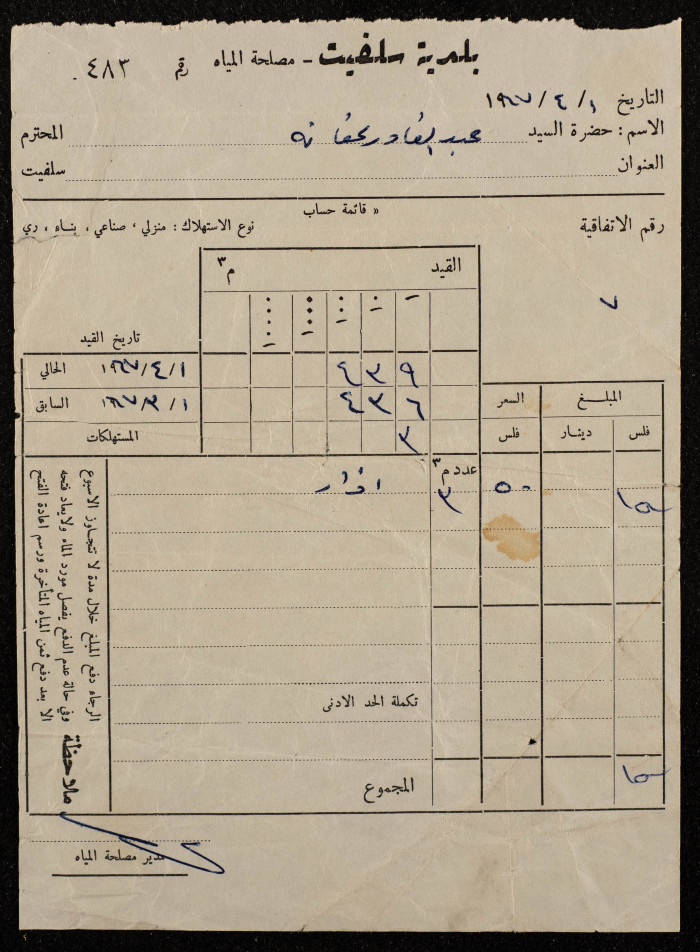 بلدية سلفيت - مصلحة المياه رقم ٤٨٣
التاريخ ١/٤/١٩٦٧
الاسم: حضرة السيد عبد القادر عفانه المحترم
العنوان سلفيت
« قائمة حساب
رقم الاتفاقية نوع الاستهلاك: منزلي، صناعي، بناء، ري
٧
القيد م٣
١ ١٠ ١٠٠ ١٠٠٠ ١٠٠٠٠ تاريخ القيد
٩ ٣ ٤ ١/٤/١٩٦٧ الحالي
المبلغ السعر ٦ ٣ ٤ ١/٣/١٩٦٧ السابق
فلس دينار فلس ٣ المستهلكات
عدد م٣
١٥٠ ٥٠ ٣ اذار
تكملة الحد الادنى
١٥٠ المجموع
ملاحظة الرجاء دفع المبلغ خلال مدة لا تتجاوز الاسبوع
وفي حالة عدم الدفع يفصل مورد الماء ولا يعاد فتحه
الا بعد دفع ثمن المياه المتأخرة ورسم اعادة الفتح
مدير مصلحة المياه